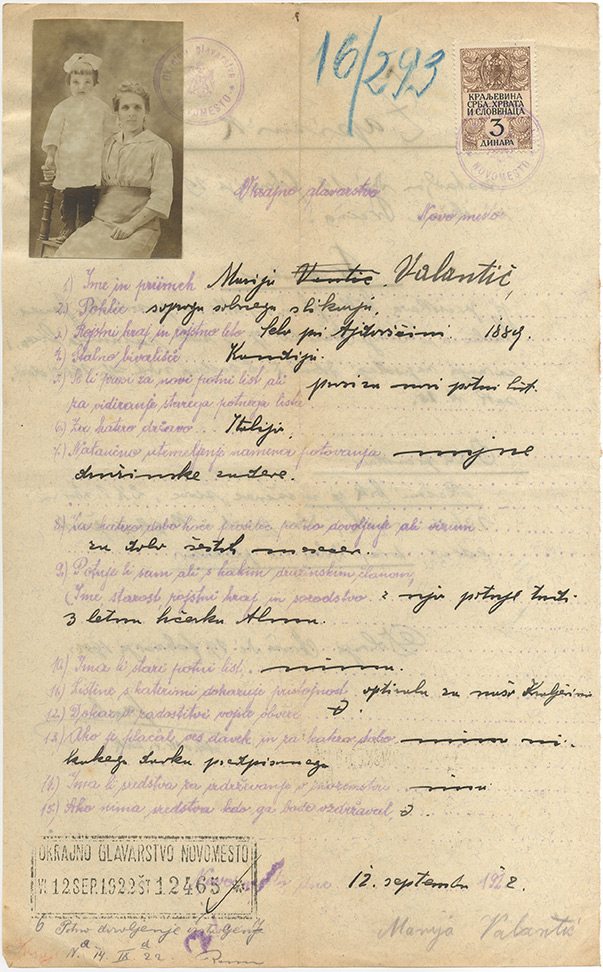 16/293
Okrajno glavarstvo
NOVOMESTO
КРАЉЕВИНА
СРБА, ХРВАТА
И СЛОВЕНАЦА
3
ДИНАРА
NOVOMESTO
Okrajno glavarstvo
Novo mesto
1) Ime in priimek Marija Ventić Valantić,
2.) Poklic soproga sobnega slikarja,
3.) Rojstni kraj in rojstno leto. Selo pri Ajdovščini. 1889.
4.) Stalno bivališče. Kandija.
5.) Ali prosi za novi potni list ali prosi za novi potni list.
za vidiranje starega potnega lista
6.) Za katero državo.. Italija,
7.) Natančno utemeljenje namena potovanja nujne
družinske zadeve.
8.) Za katero dobo hoče prositi potno dovoljenje ali vizum
za dobo šestih mesecev.
9.) Potuje li sam ali s kakim družinskim članom
(Ime starost rojstni kraj in sorodstvo z njo potuje tudi
3 letna hčerka Alma.
10.) Ima li stari potni list. nima.
11.) Listine s katerimi dokazuje pristojnost optirala za našo Kraljevino
12.) Dokaz o zadostitvi vojne obveze
13.) Ako je plačal ves davek in za katero dobo nima ni-
kakega davka predpisanega
14.) Ima li sredstva za vzdrževanje v inozemstvu ima
15.) Ako nima sredstva kdo ga bode vzdrževal
OKRAJNO GLAVARSTVO NOVOMESTO
12.SEP.1922 ŠT 12465
dne 12. septembra 1922.
Potno dovoljenje
14. IX 22
Marija Valantić